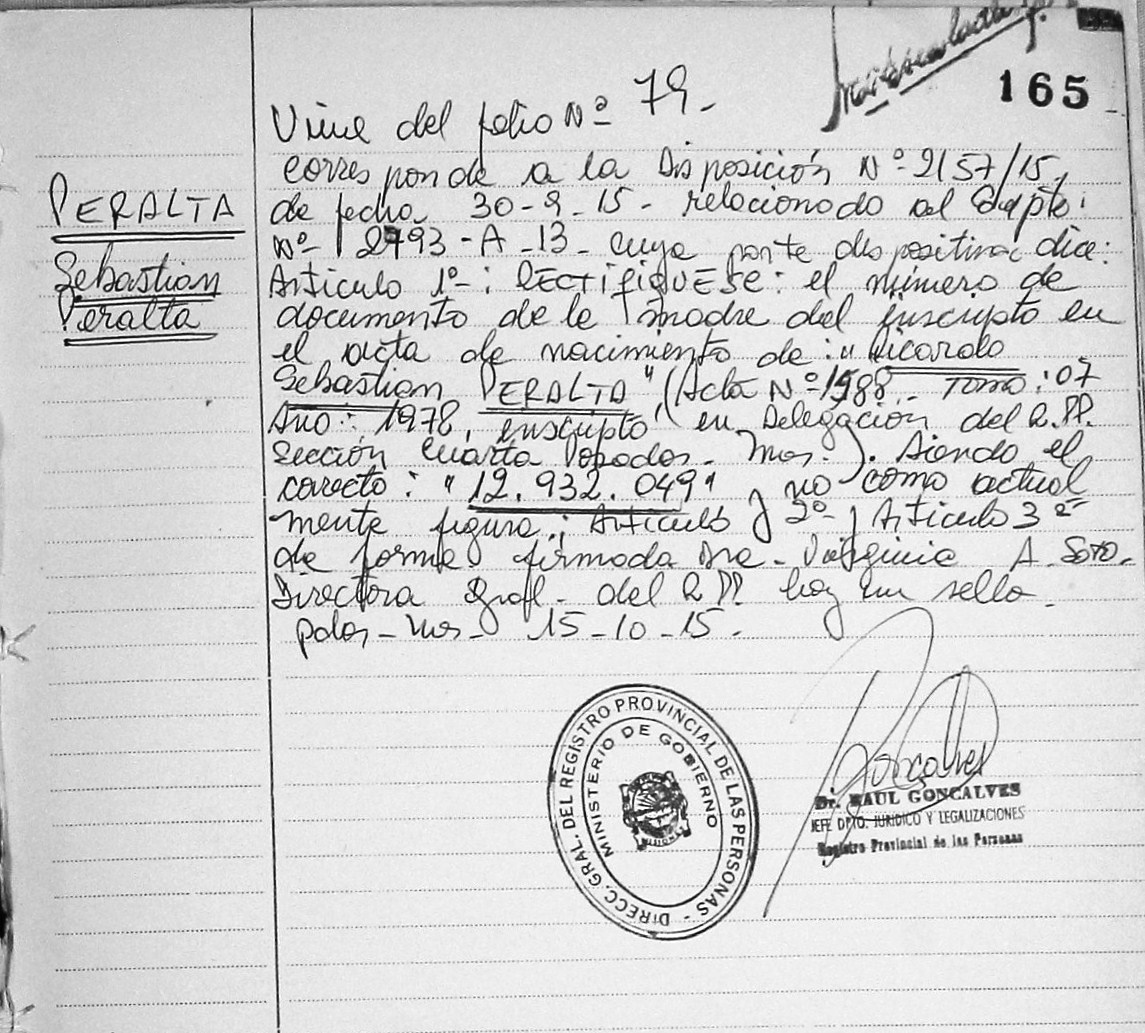 165
PERALTA
Sebastian
Peralta
Viene del folio Nº 79.-
corresponde a la Disposición Nº 2157/15,
de fecha 30-9-15- relacionado al Expte:
Nº 12793-A-13- cuya parte dispositiva dice:
Articulo 1º: RECTIFIQUESE: el número de
documento de la madre del inscripto en
el acta de nacimiento de: "Ricardo
Sebastian PERALTA" (Acta Nº 1588.- Tomo: 07
Año: 1978, inscripto en Delegación del R.PP.
Sección Cuarta Posadas. Mnes.). Siendo el
correcto: "12.932.049" y no como actual
mente figura.; Articulo 2º y Articulo 3º
de forma firmada Dra. Virginia A. Soto.
Directora Gral. del R.PP. hay un sello.
Pdas-Mnes- 15-10-15.
DIRECC. GRAL. DEL REGISTRO PROVINCIAL DE LAS PERSONAS -
MINISTERIO DE GOBIERNO
Dr. RAUL GONCALVES
JEFE DPTO. JURIDICO Y LEGALIZACIONES
Registro Provincial de las Personas